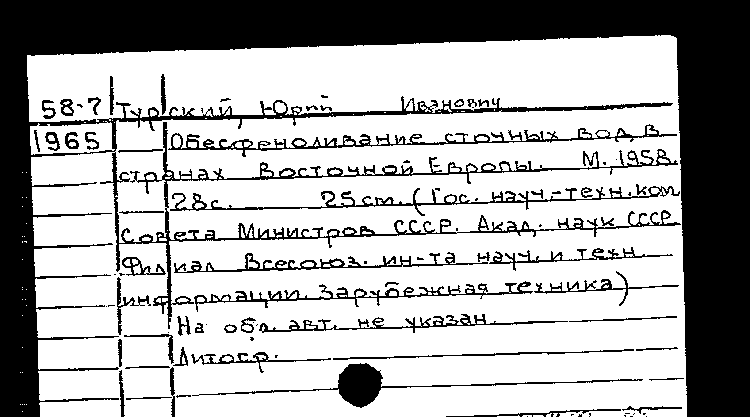 58-7 Турский, Юрий Иванович
1965 Обесфеноливание сточных вод в
странах Восточной Европы. М., 1958.
28с. 25см. (Гос. науч.-техн. ком.
Совета Министров СССР. Акад. наук СССР.
Филиал Всесоюз. ин-та науч. и техн.
информации. Зарубежная техника)
На обл. авт. не указан.
Литогр.